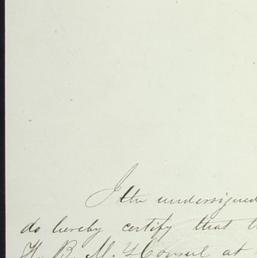 I the undersigned
do hereby certify that t
H. B. M. Consul at